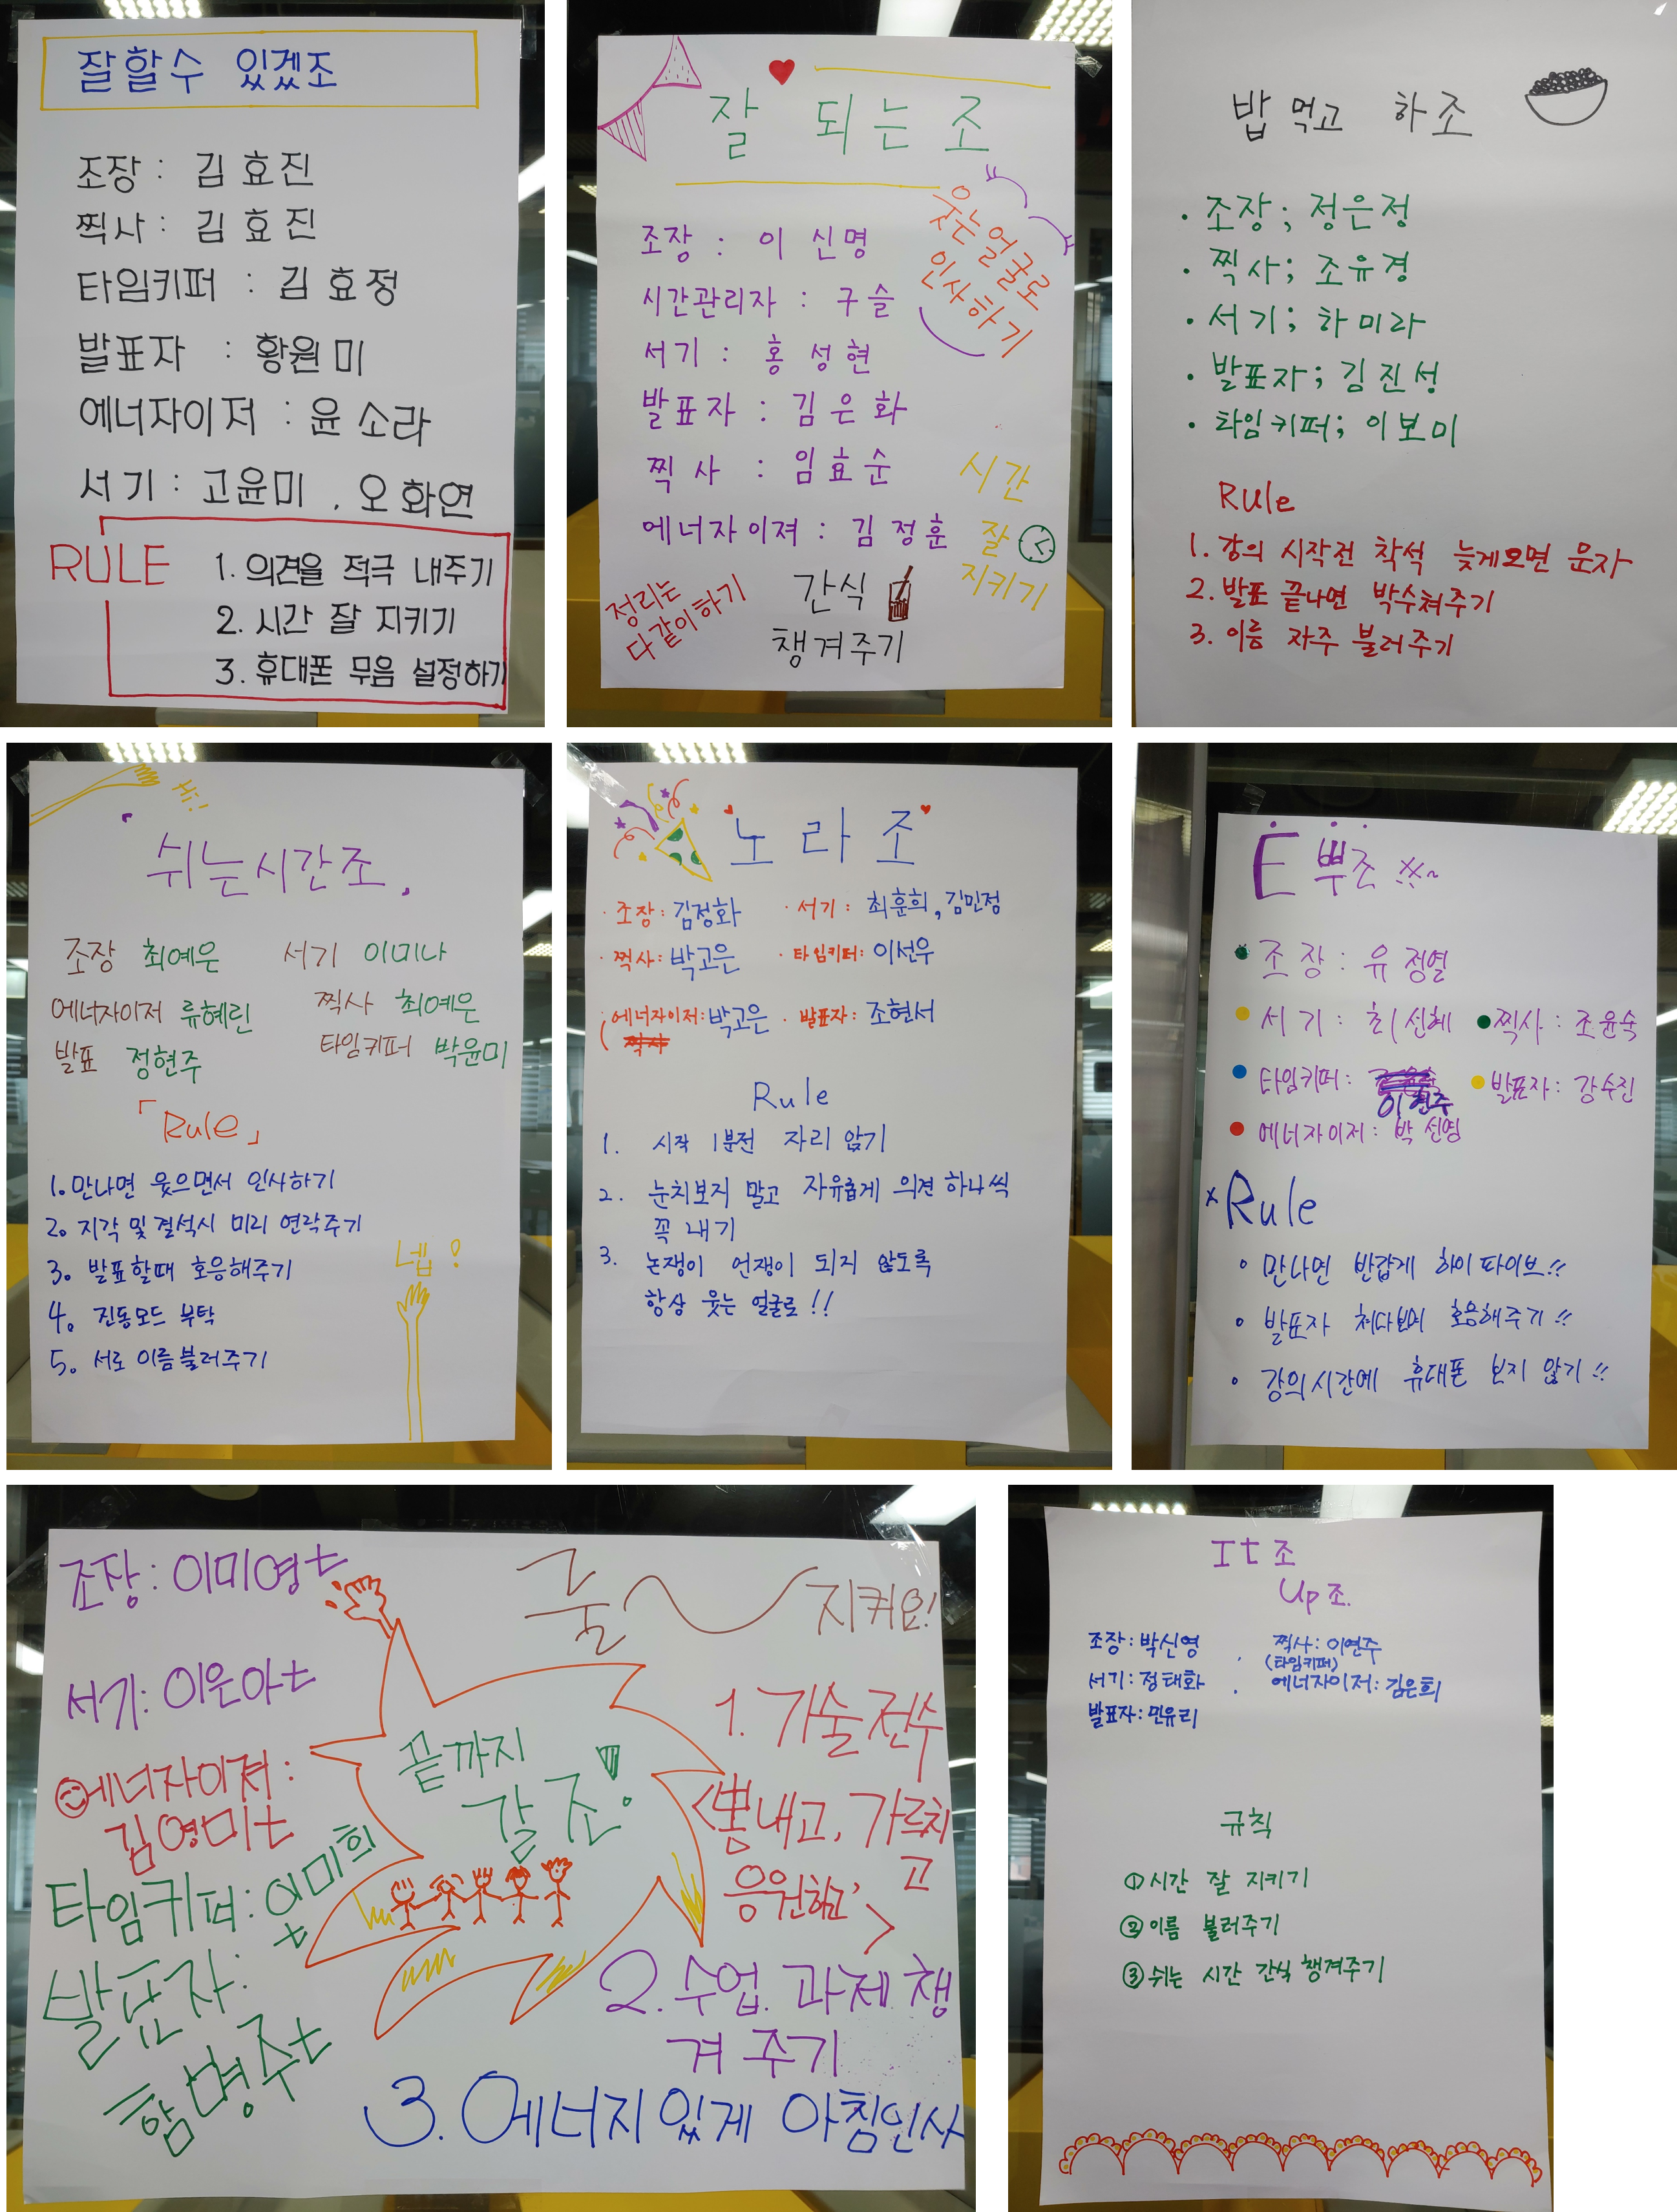 잘할수 있겠조
조장 : 김효진
찍사 : 김효진
타임키퍼 : 김효정
발표자 : 황원미
에너자이저 : 윤소라
서기 : 고윤미, 오화연
RULE
1. 의견을 적극 내주기
2. 시간 잘 지키기
3. 휴대폰 무음 설정하기
잘 되는 조
웃는얼굴로
인사하기
조장 : 이신명
시간관리자 : 구슬
서기 : 홍성현
발표자 : 김은화
찍사 : 임효순
에너자이져 : 김정훈
시간
잘
지키기
정리는
다같이하기
간식
챙겨주기
밥먹고 하조
• 조장; 정은정
• 찍사; 조유경
• 서기; 하미라
• 발표자; 김진성
• 타임키퍼; 이보미
Rule
1. 강의 시작전 착석 늦게오면 문자
2. 발표 끝나면 박수쳐주기
3. 이름 자주 불러주기
쉬는시간조
조장 최예은 서기 이미나
에너자이저 류혜린 찍사 최예은
발표 정현주 타임키퍼 박윤미
「Rule」
1. 만나면 웃으면서 인사하기
2. 지각 및 결석시 미리 연락주기
3. 발표할때 호응해주기
4. 진동모드 부탁
5. 서로 이름불러주기
넵!
노라조
· 조장: 김정화 · 서기: 최훈희, 김민정
· 찍사: 박고은 · 타임키퍼: 이선우
에너자이저: 박고은 · 발표자: 조현서
Rule
1. 시작 1분전 자리 앉기
2. 눈치보지 말고 자유롭게 의견 하나씩
꼭 내기
3. 논쟁이 언쟁이 되지 않도록
항상 웃는 얼굴로!!
E쁘조
조장: 유정열
서기: 최신혜 찍사: 조윤숙
타임키퍼: 이현주 발표자: 강수진
에너자이저: 박신영
Rule
만나면 반갑게 하이파이브!!
발표자 쳐다보며 호응해주기!!
강의시간에 휴대폰 보지 않기!!
조장: 이미영t
룰~지켜요!
서기: 이은아t
에너자이져:
김영미t
타임키퍼: 이미희t
발표자:
함명주t
끝까지
갈조!
1. 기술전수
<뽐내고, 가르치고
응원하고>
2. 수업. 과제 챙
겨 주기
3. 에너지있게 아침인사
It조
Up조.
조장: 박신영 찍사: 이연주
(타임키퍼)
서기: 정태화 에너자이저: 김은희
발표자: 민유리
규칙
① 시간 잘 지키기
② 이름 불러주기
③ 쉬는 시간 간식 챙겨주기